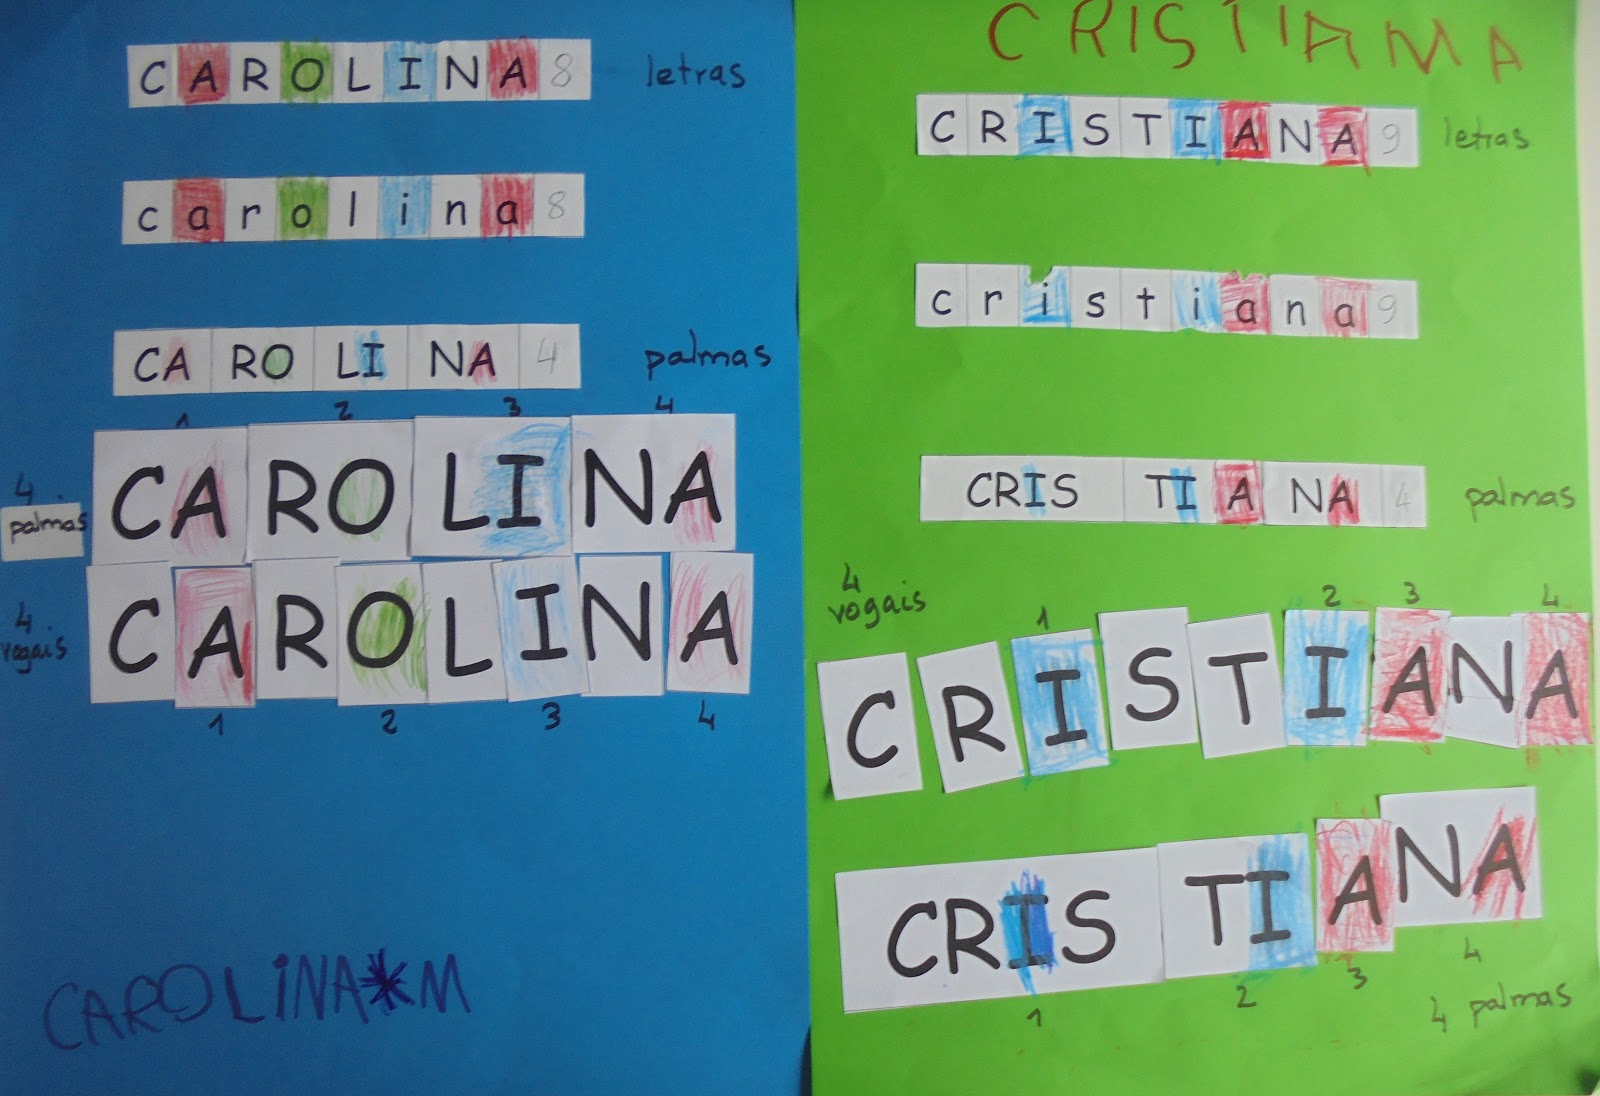 CAROLINA 8 letras
carolina 8
CA RO LI NA 4 palmas
1 2 3 4
4 palmas CA RO LI NA
4 vogais CAROLINA
1 2 3 4
CAROLINA*M
CRISTIAMA
CRISTIANA 9 letras
cristiana 9
CRIS TI A NA 4 palmas
4 vogais 1 2 3 4
CRISTIANA
CRIS TI A NA
1 2 3 4
4 palmas